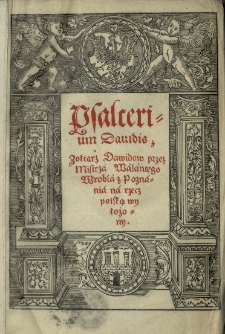 Psalteri-
um Dauidis,
Zołtarz Dawidow przez
Mistrza Walantego
Wrobla z Pozna-
nia na rzecz
polską wy
łożo-
ny.